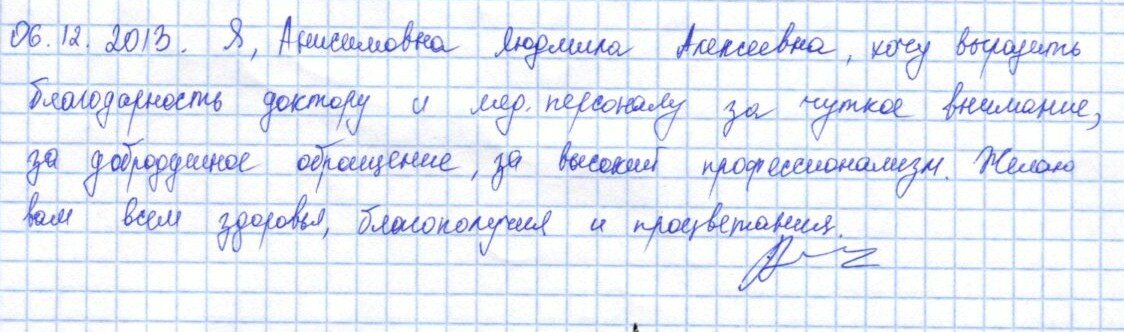 06.12.2013. Я, Анисимовна Людмила Алексеевна, хочу выразить
благодарность доктору и мед. персоналу за чуткое внимание,
за добродушное обращение, за высокий профессионализм. Желаю
вам всем здоровья, благополучия и процветания.